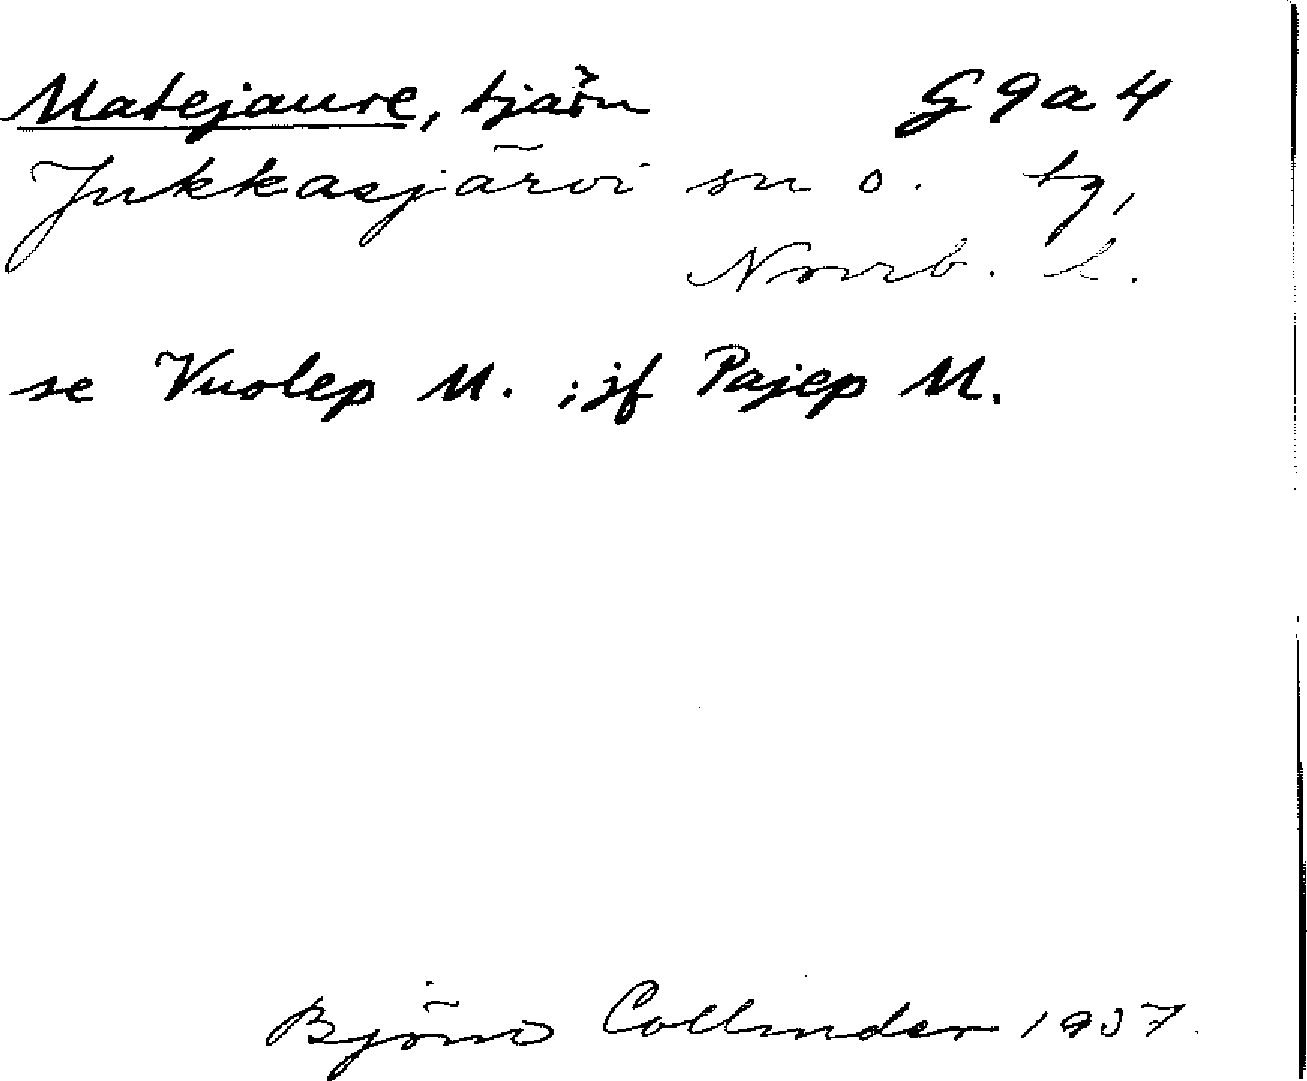 Matejaure, tjärn G9a4
Jukkasjärvi sn o. tg,
Norrb. l.
se Vuolep M. ; jf Pajep M.
Björn Collinder 1937